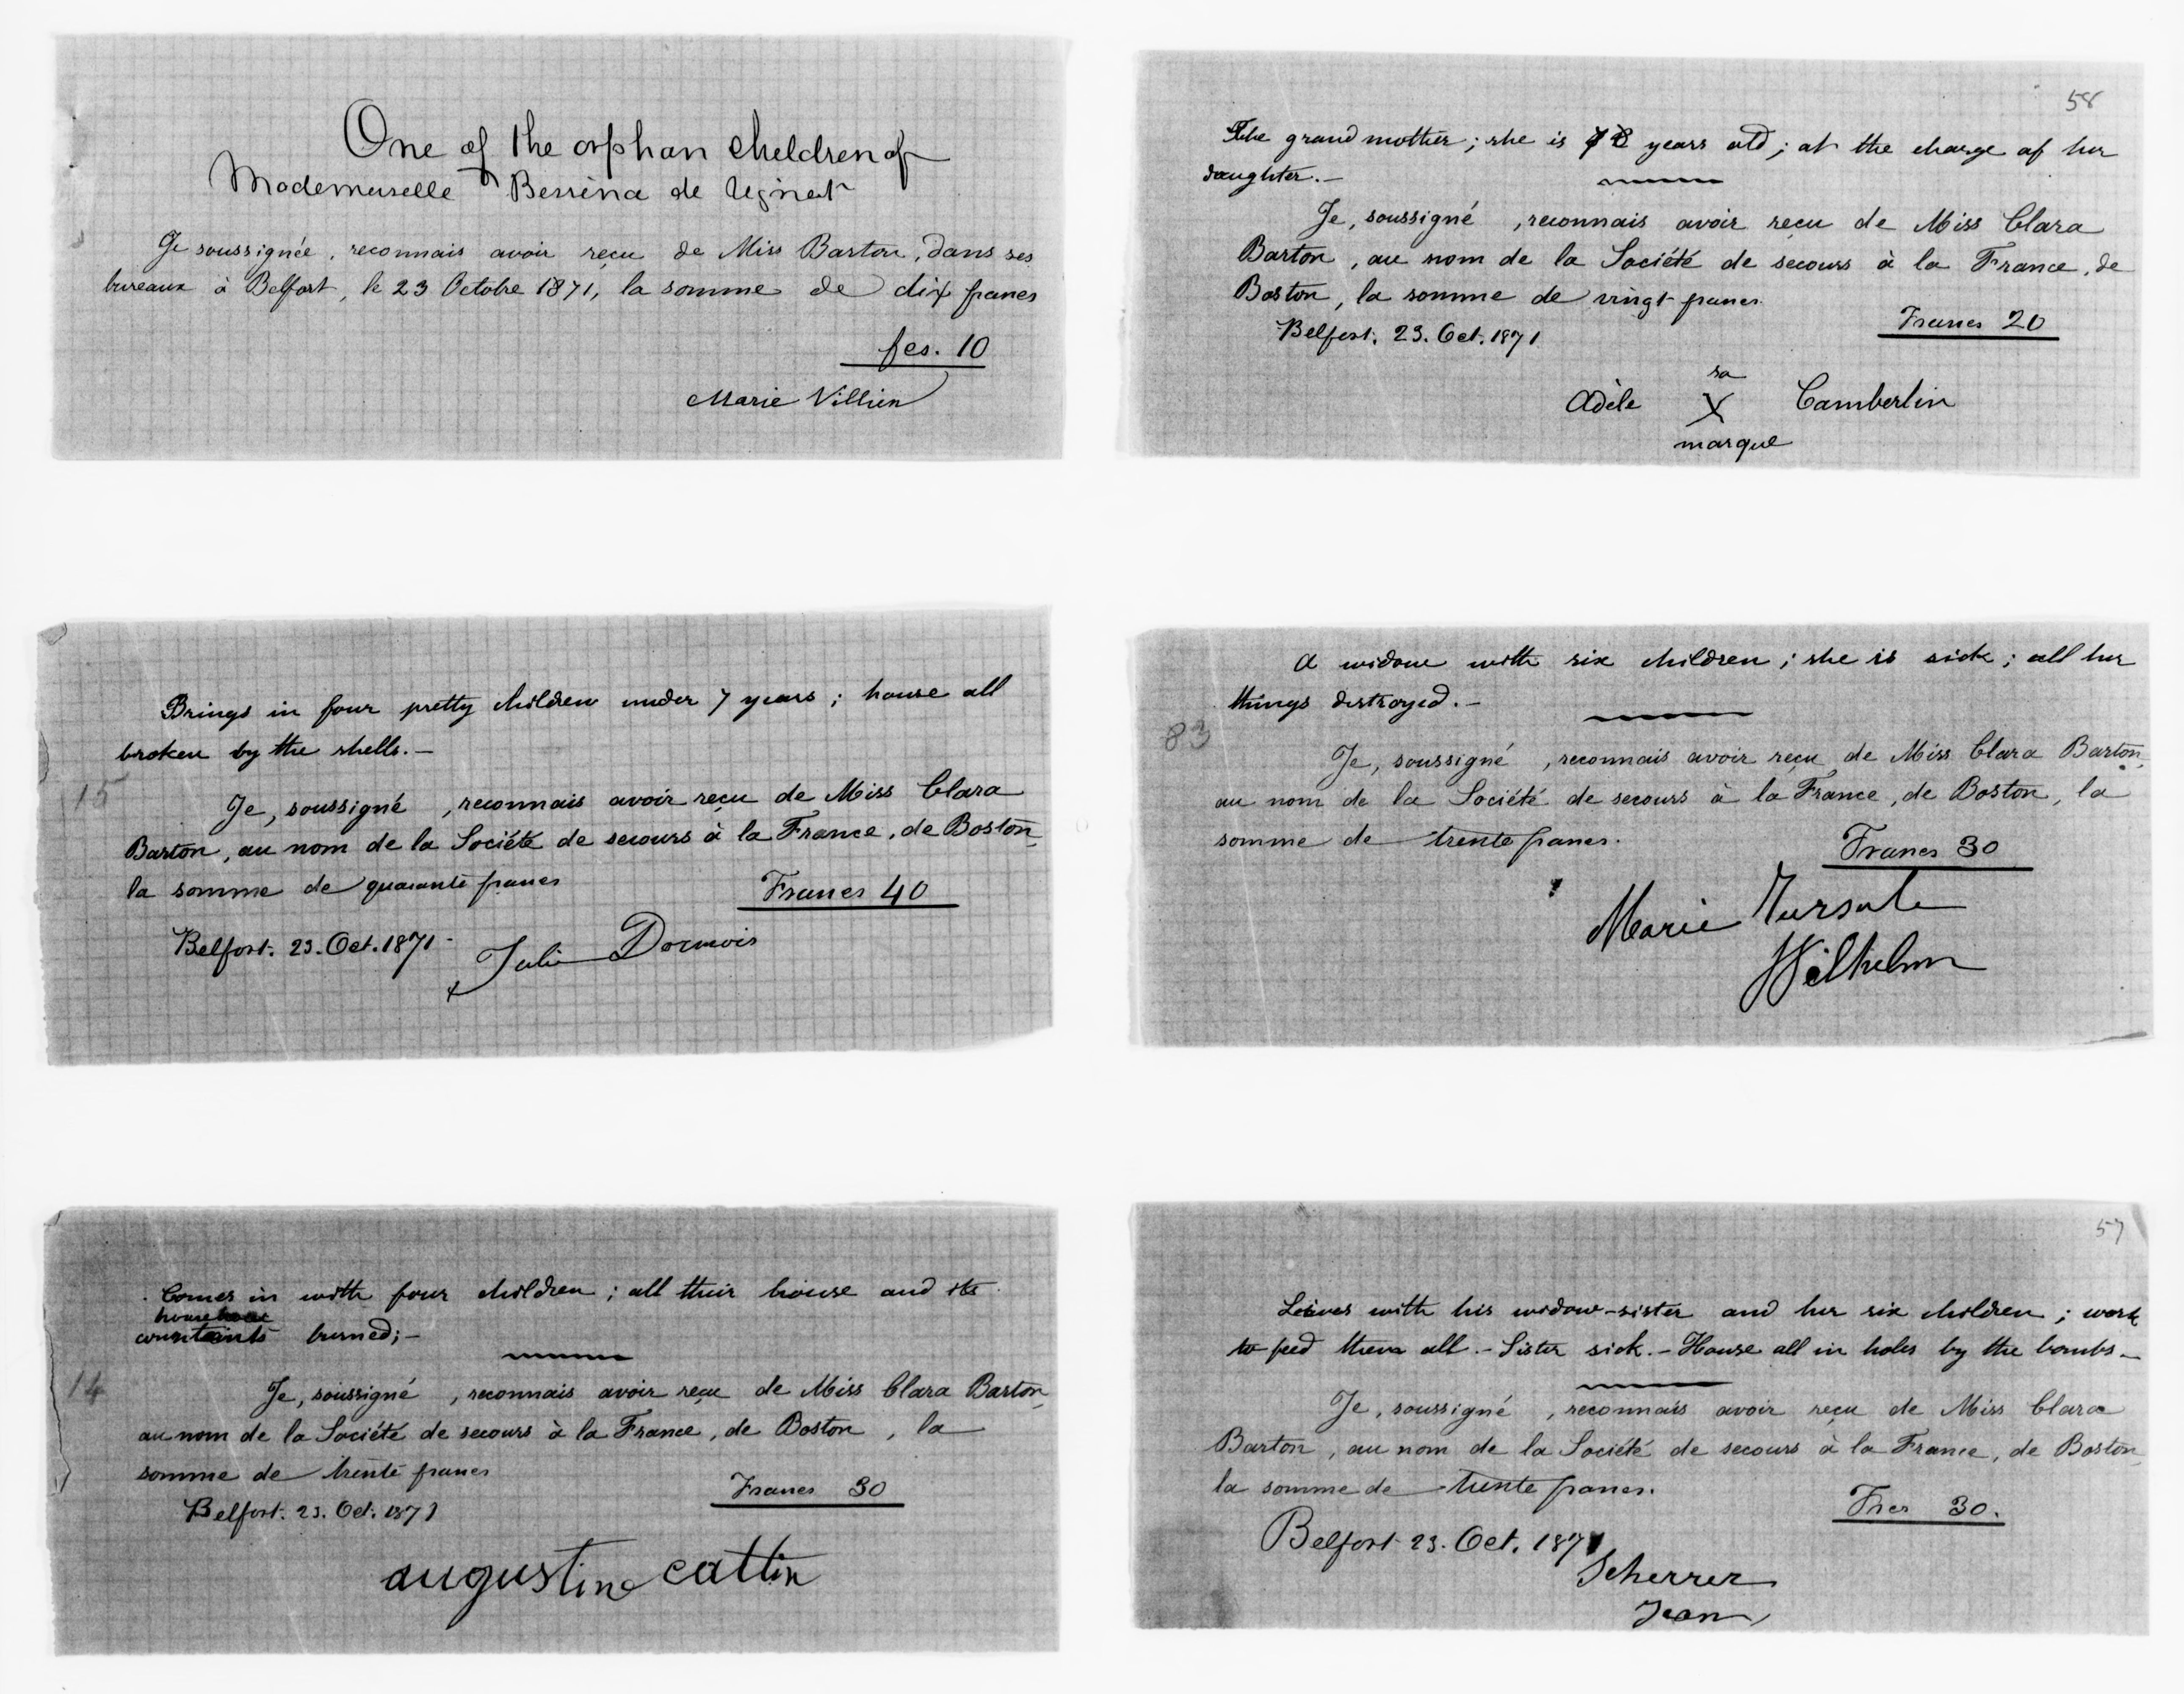 One of the orphan children of
Mademuselle Berrina de
Je soussignée, reconnais avoir reçu de Miss Barton, dans ses
bureaux à Belfort, le 23 Octobre 1871, la somme de dix francs
fcs. 10
Marie Villien
58
The grand mother; she is years old; at the charge of her
daughter.-
Je, soussigné , reconnais avoir reçu de Miss Clara
Barton, au nom de la Société de secours à la France, de
Boston, la somme de vingt francs.
Francs 20
Belfort, 23. Oct. 1871
sa
Adèle X Camberlin
marque
Brings in four pretty children under 7 years; house all
broken by the shells.-
15
Je, soussigné , reconnais avoir reçu de Miss Clara
Barton, au nom de la Société de secours à la France, de Boston,
la somme de quarante francs
Francs 40
Belfort. 23. Oct. 1871
Julie Dormois
A widow with six children; she is sick; all her
things destroyed.-
83
Je, soussigné , reconnais avoir reçu de Miss Clara Barton,
au nom de la Société de secours à la France, de Boston, la
somme de trente francs.
Francs 30
Marie
Wilhelm
Comes in with four children; all their house and its
burned;-
14
Je, soussigné , reconnais avoir reçu de Miss Clara Barton,
au nom de la Société de secours à la France, de Boston , la
somme de trente francs
Francs 30
Belfort. 23. Oct. 1871
augustine cattin
57
Leives with his widow-sister and her six children; work
to feed them all.- Sister sick.- House all in holes by the bombs-
Je, soussigné , reconnais avoir reçu de Miss Clara
Barton, au nom de la Société de secours à la France, de Boston,
la somme de trente francs.
Frcs 30.
Belfort 23. Oct. 1871
Scherrer
Jean